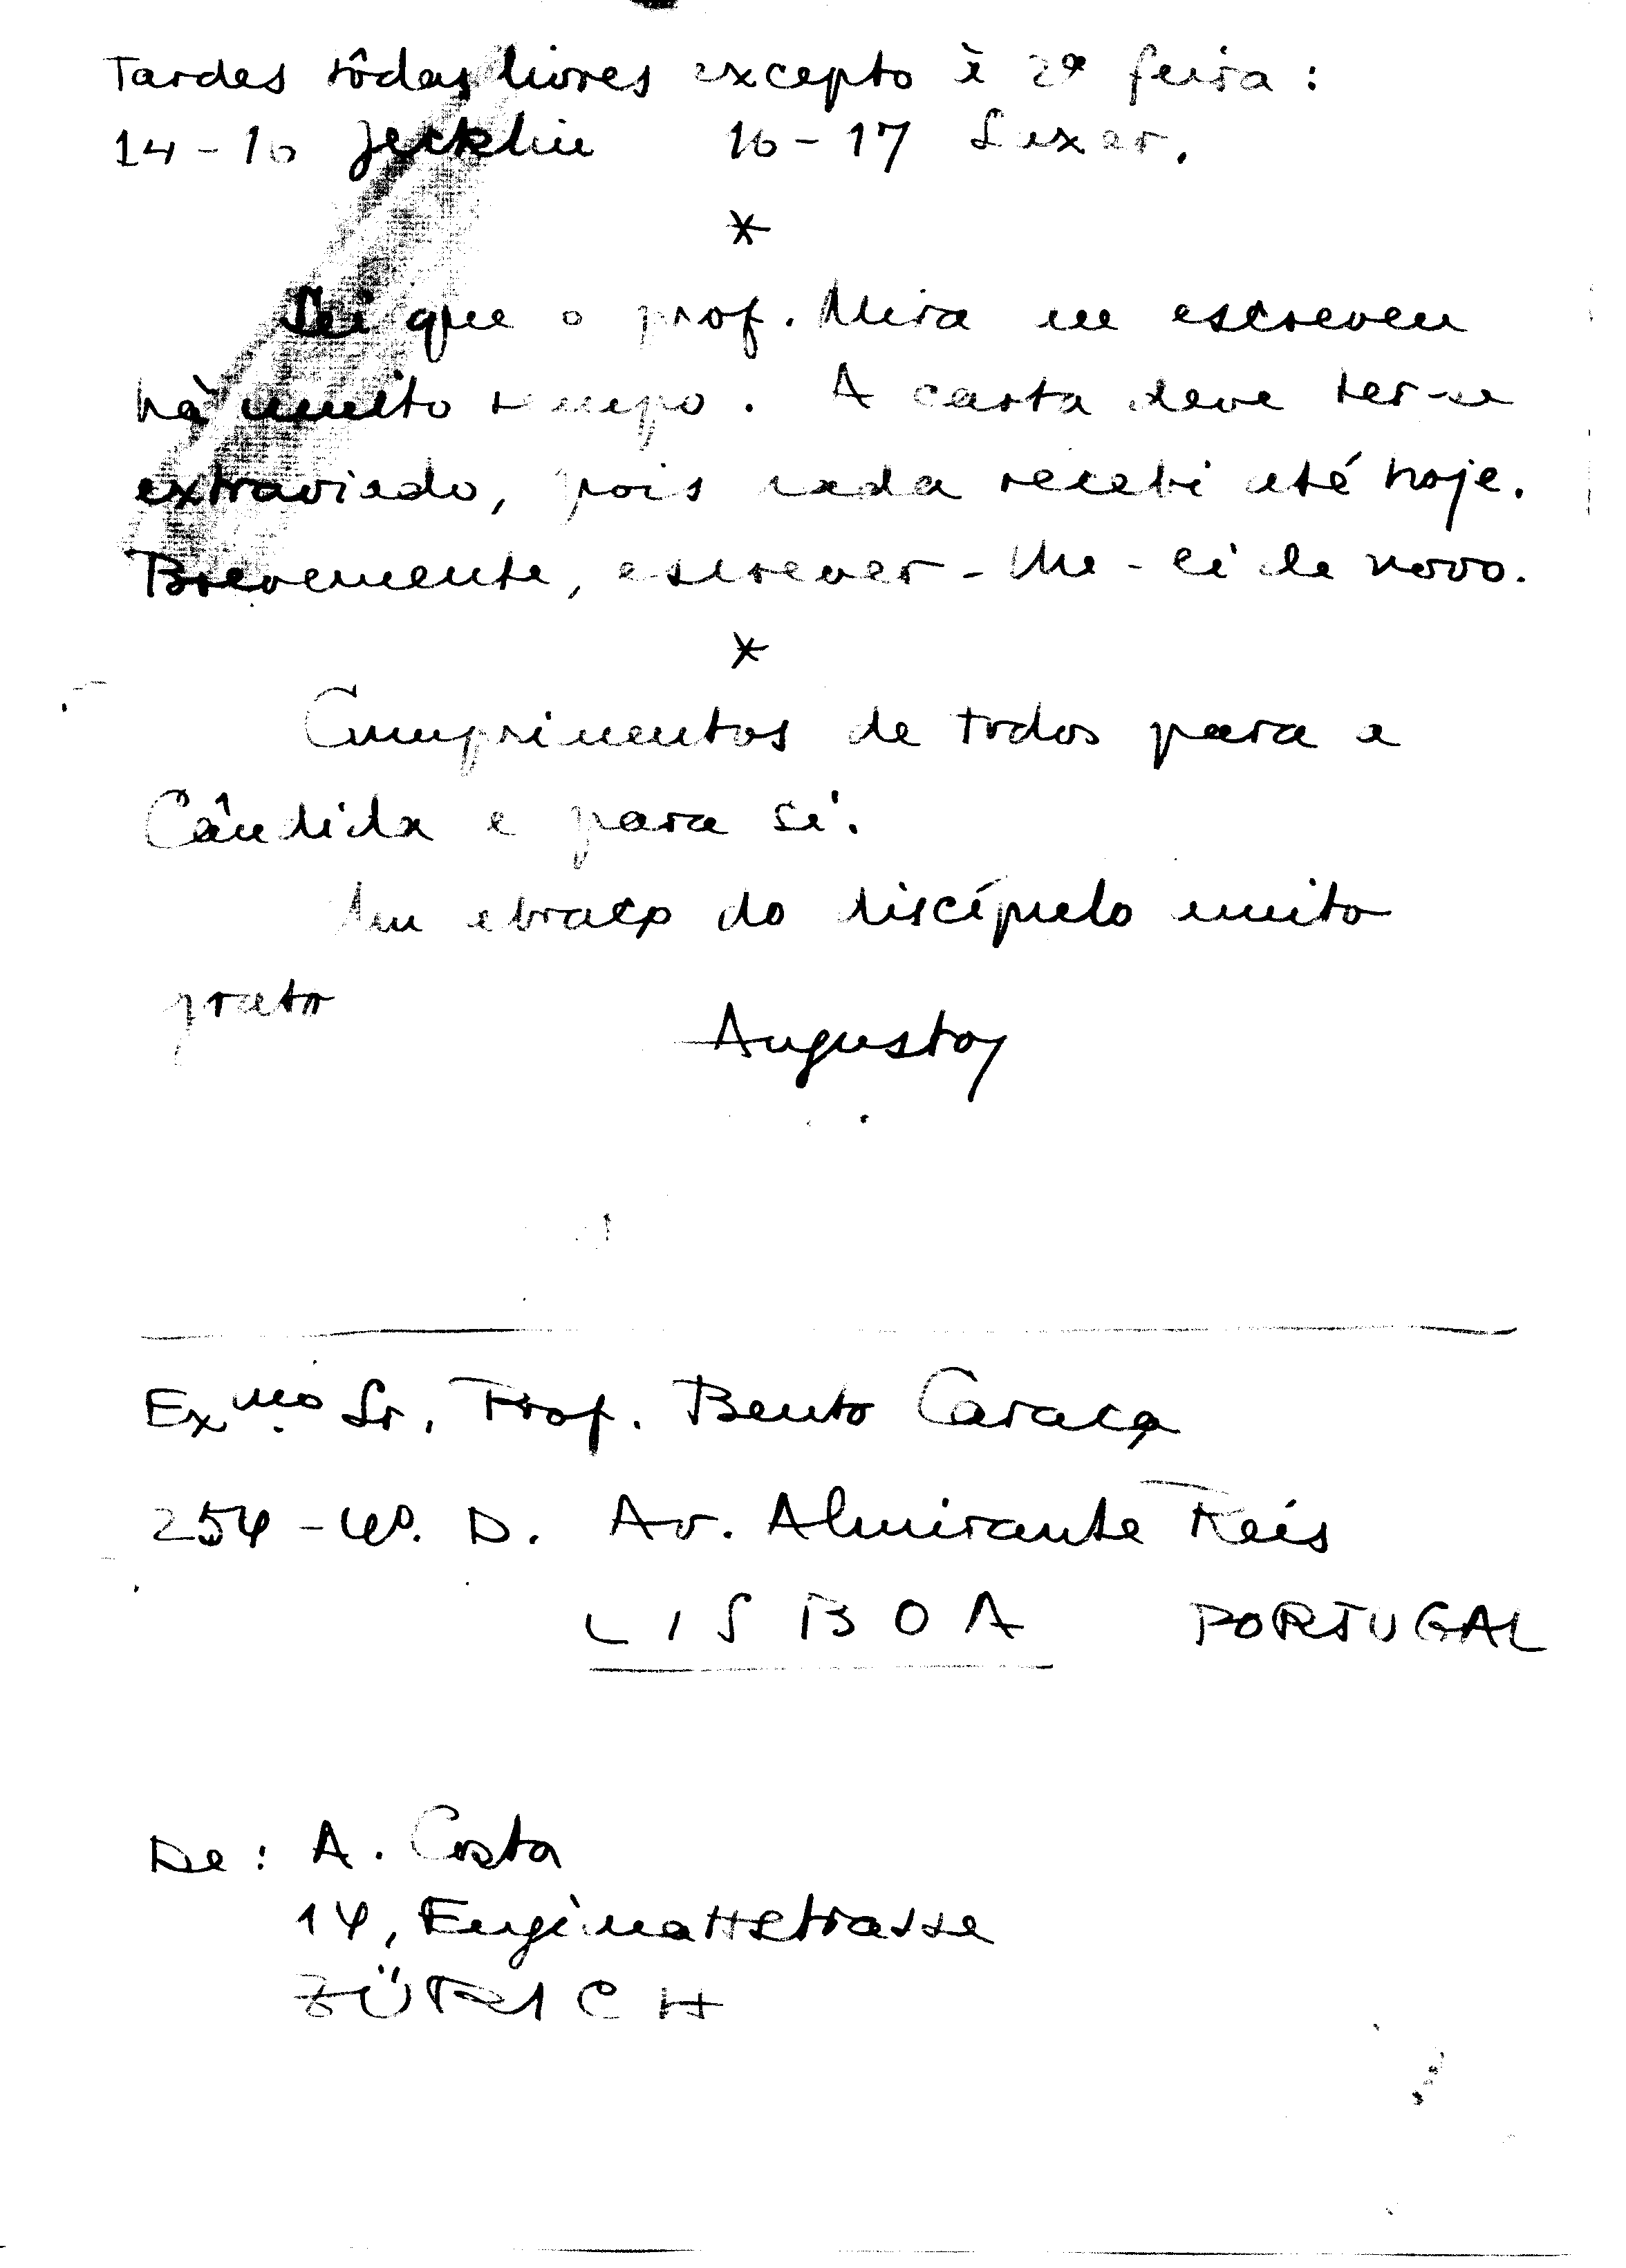 Tardes tôdas livres excepto à 2ª feira:
14-16 Jecklin 16-17 Luxar.
*
Sei que o prof. Mira me escreveu
há muito tempo. A carta deve ter-se
extraviado, pois nada recebi até hoje.
Brevemente, escrever-lhe-ei de novo.
*
Cumprimentos de todos para a
Cândida e para si.
Um abraço do discípulo muito
grato
Augusto
Exmo. Sr. Prof. Bento Caraça
254-4º. D. Av. Almirante Reis
LISBOA PORTUGAL
De: A. Costa
14, Engimattstrasse
ZÜRICH